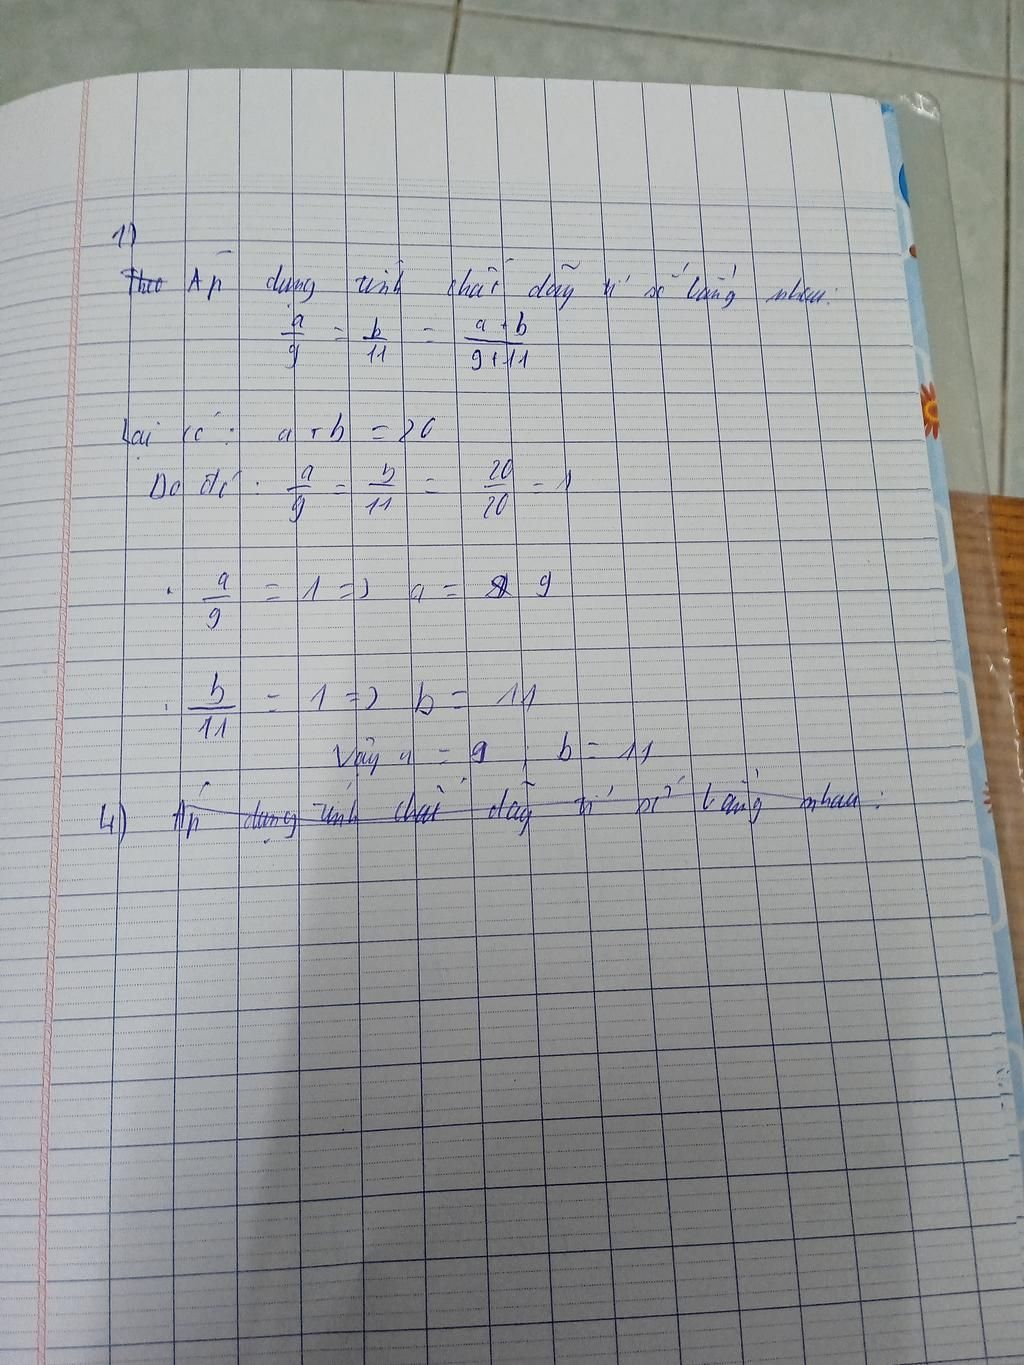 1)
Theo Áp dụng tính chất dãy tỉ số bằng nhau:
a/9 = b/11 = a+b/9+11
Lại có: a+b = 20
Do đó: a/9 = b/11 = 20/20 = 1
. a/9 = 1 => a = 9
. b/11 = 1 => b = 11
Vậy a = 9 ; b = 11
4) Áp dụng tính chất dãy tỉ số bằng nhau: